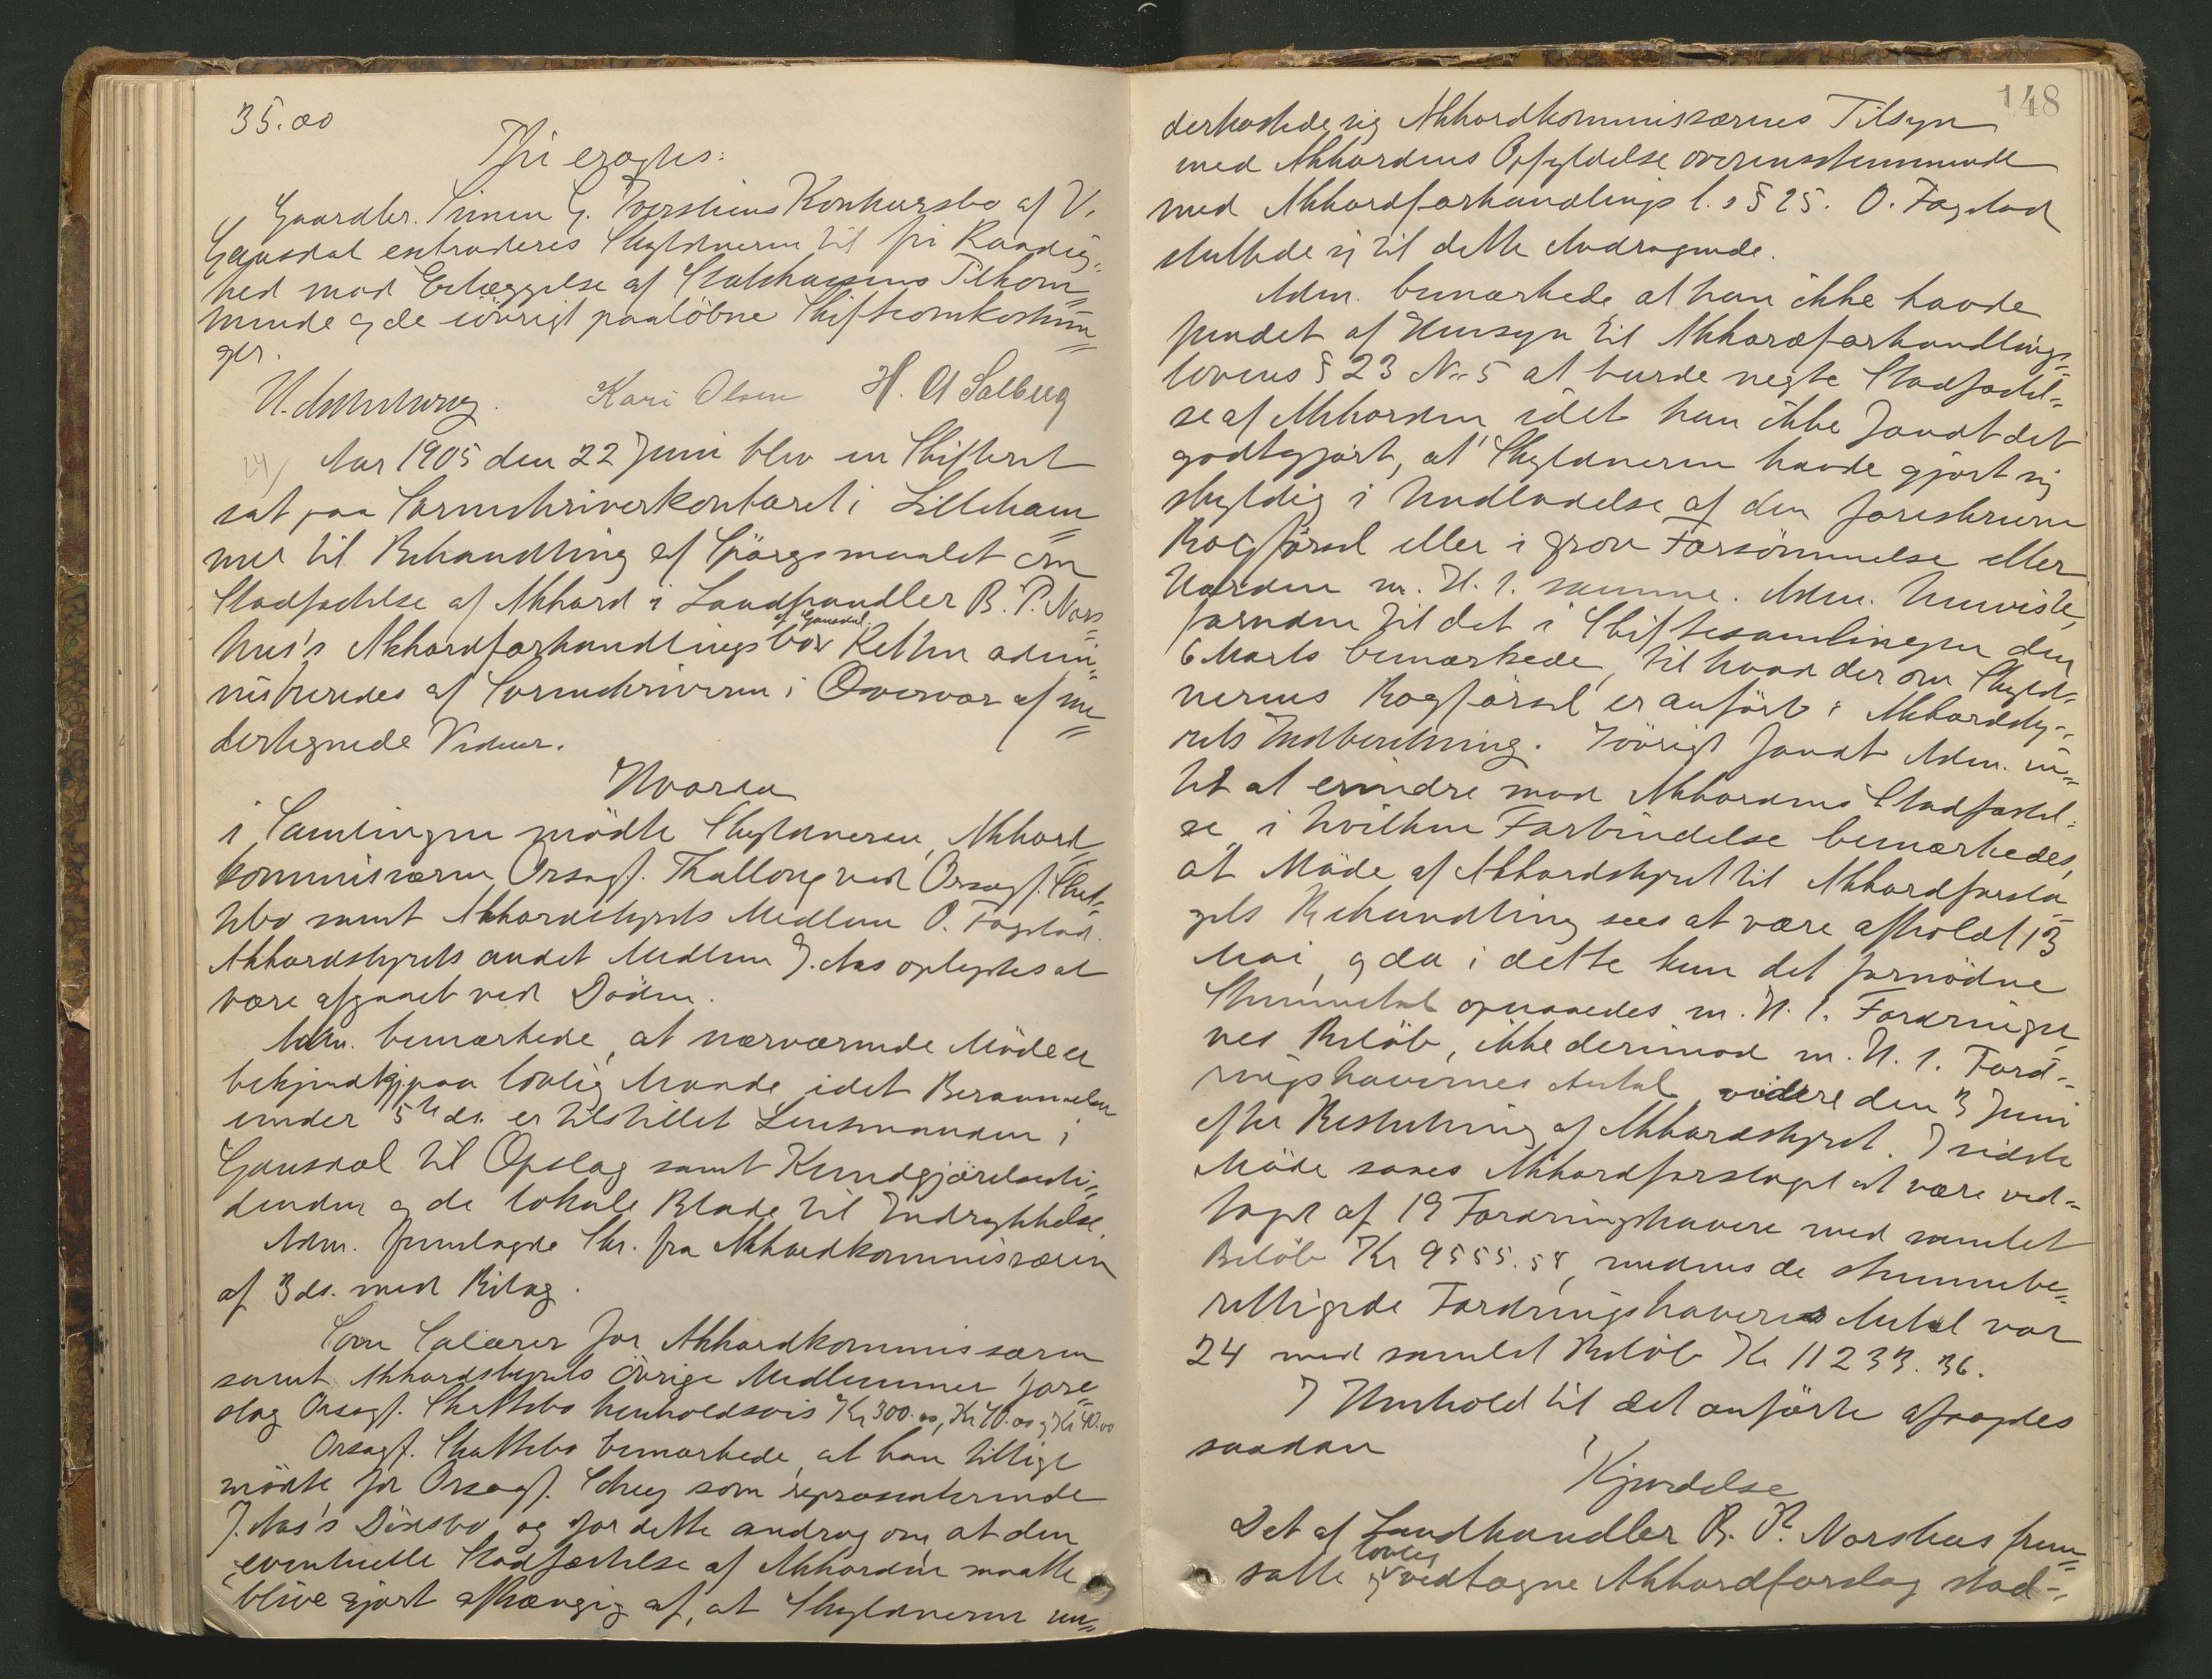 35.00
Thi eragtes:
Gaardbr. Simen G. Iversliens Konkursbo af V.
Gausdal extraderes Skyldneren til fri Raadig-
hed mod Erlæggelse af Statskassens Tilkom-
mende og de iövrigt paalöbne Skifteomkostnin-
ger.
Kari Olsen H. A Salberg
Aar 1905 den 22 Juni blev en Skifteret
sat paa Sorenskriverkontoret i Lilleham-
mer til Behandling af Spörgsmaalet om
Stadfæstelse af Akkord i Landhandler B. P. Nors-
hus's Akkordforhandlingsbo
af Gausdal.
Retten admi-
nistreredes af Sorenskriveren i Overvær af un-
dertegnede Vidner.
Hvorda
i Samlingen mödte Skyldneren, Akkord-
kommissæren Orsagf. Thallaug ved Orsagf. Skat-
tebo samt Akkordstyrets Medlem O. Fagstad.
Akkordstyrets andet Medlem J. Aas oplystes at
være afgaaet ved Döden.
Adm. bemærkede, at nærværende Möde er
bekjendtgj paa lovlig Maade idet Berammelse
under 5te ds. er tilstillet Lensmanden i
Gausdal til Opslag samt Kundgjörelsesti-
denden og de lokale Blade til Indrykkelse.
Adm. fremlagde Skr. fra Akkordkommissæren
af 3 ds. med Bilag.
Som Salærer for Akkordkommissæren
samt Akkordstyrets övrige Medlemmer fore-
slog Orsagf. Skattebo henholdsvis Kr 300.00, Kr 40.00 og Kr 40.00
Orsagf. Skattebo bemærkede, at han tillige
mödte for Orsagf. som repræsenterende
J. Aas's Dödsbo, og for dette androg om, at den
eventuelle Stadfæstelse af Akkorden maatte
blive gjort afhængig af, at Skyldneren un-
148
derkastede sig Akkordkommissærens Tilsyn
med Akkordens Opfyldelse overensstemmende
med Akkordforhandlings l.s § 25. O. Fagstad
sluttede sig til dette Andragende.
Adm. bemærkede at han ikke havde
fundet af Hensyn til Akkordforhandlings-
lovens § 23 No 5 at burde negte Stadfæstel-
se af Akkorden idet han ikke fandt det
godtgjort, at Skyldneren havde gjort sig
skyldig i Undladelse af den foreskrevne
Bogförsel eller i grov Forsömmelse eller
Uorden m. H. t. samme. Adm. henviste,
foruden til det i Skiftesamlingen den
6 Marts bemærkede, til hvad der om Skyld-
nerens Bogförsel er anfört i Akkordsty-
rets Indberetning. Iövrigt fandt Adm. in-
tet at erindre mod Akkordens Stadfæstel-
se, i hvilken Forbindelse bemærkedes,
at Möde af Akkordstyret til Akkordforsla-
gets Behandling sees at være afholdt 13
Mai, og da i dette kun det fornödne
Stemmetal opnaaedes m. H. t. Fordringer-
nes Belöb, ikke derimod m. H. t. Ford-
ringshavernes Antal, videre den 3 Juni
efter Beslutning af Akkordstyret. I sidste
Möde saaes Akkordforslaget at være ved-
taget af 19 Fordringshavere med samlet
Belöb Kr 9555.58, medens de stemmebe-
rettigede Fordringshaveres Antal var
24 med samlet Belöb Kr 11233.36.
I Henhold til det anförte afsagdes
saadan
Kjendelse
Det af Landhandler B. P. Norshus frem-
satte og
lovlig
vedtagne Akkordforslag stad-